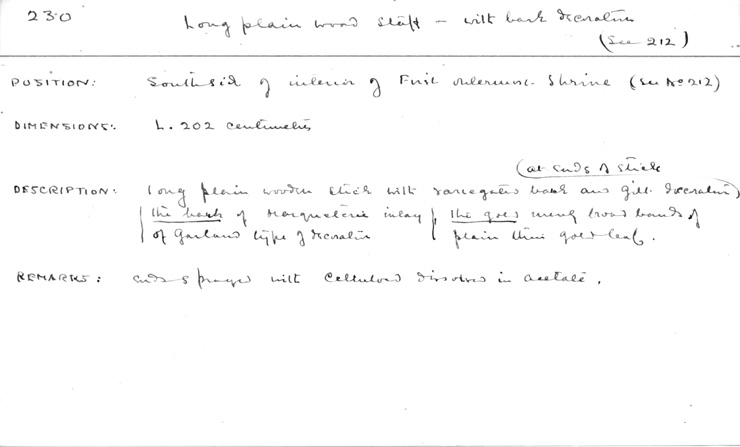 230
Long plain wood staff - with bark decoration
(See 212)
POSITION: South side of interior of First outermost Shrine (see No 212)
DIMENSIONS: L. 202 centimetres
(at ends of stick
DESCRIPTION: Long plain wooden stick with variegated bark and gilt decoration)
the bark of marqueterie inlay | the gold being broad bands of
of Garland type of decoration | plain thin gold leaf.
REMARKS: Ends sprayed with celluloid dissolved in acetate.